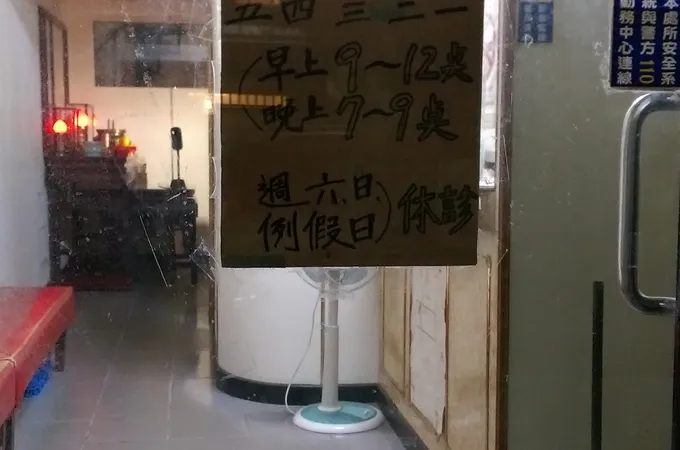 五四三二一
(早上9~12奌
晚上7~9奌
週六、日
例假日)休診
本處所安全系
統與警方110
勤務中心連線